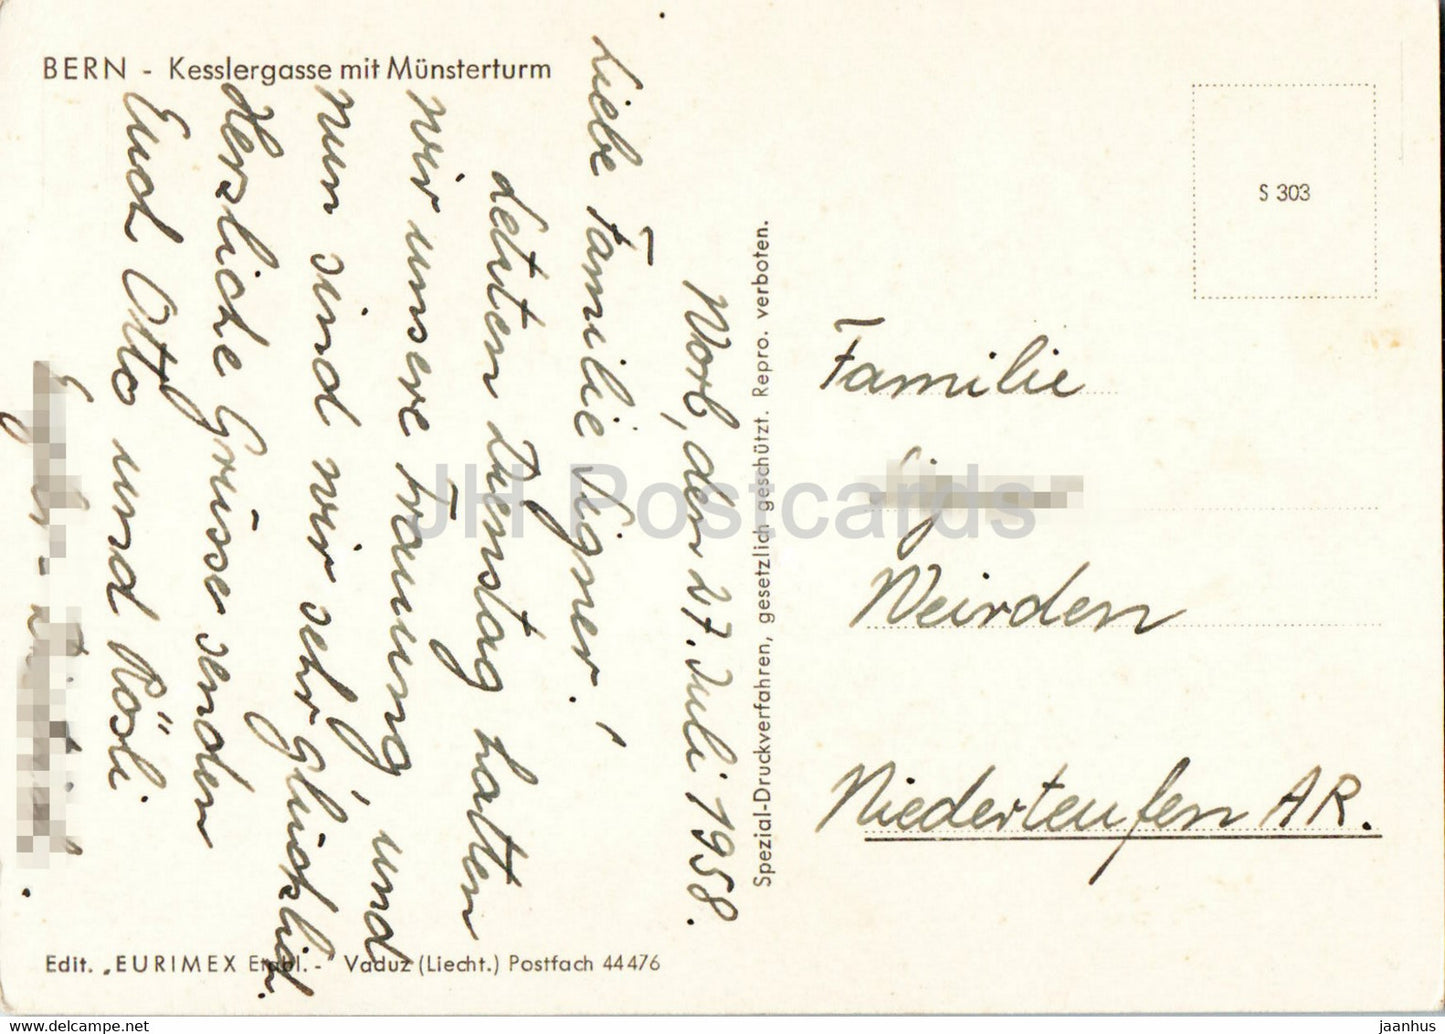 BERN - Kesslergasse mit Münsterturm
Worb, den 27. Juli 1958.
Liebe Familie Signer!
Letzten Dienstag hatten
wir unsere Trauung, und
nun sind wir sehr glücklich.
Herzliche Grüsse senden
Euch Otto und Rösli
Spezial-Druckverfahren, gesetzlich geschützt. Repro. verboten.
S 303
Familie
Weirden
Niederteufen AR.
Edit. „EURIMEX Etabl.- Vaduz (Liecht.) Postfach 44476
JH Postcards
https://www.delcampe.net
jaanhus